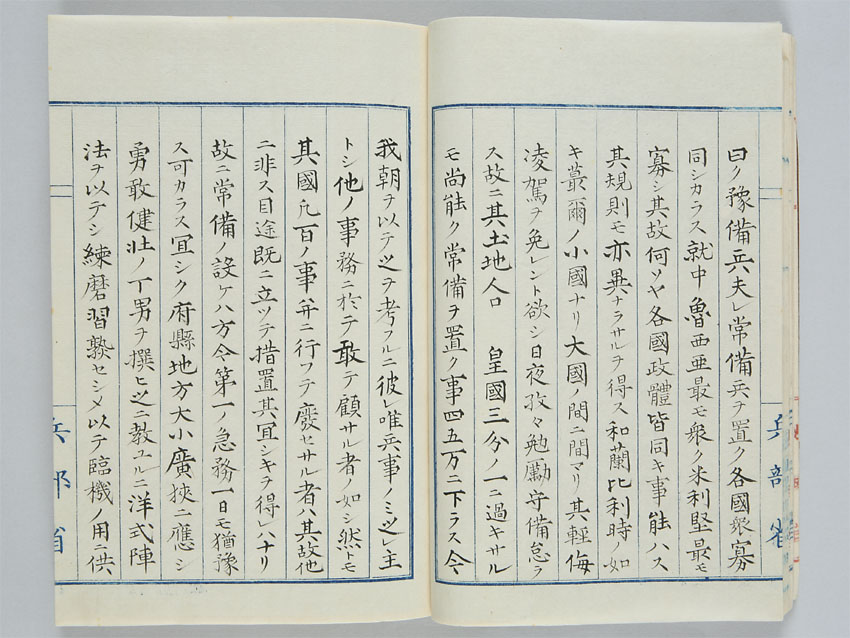 曰ク豫備兵夫レ常備兵ヲ置ク各國衆寡
同シカラス就中魯西亜最モ衆ク米利堅最モ
寡シ其故何ソヤ各國政體皆同キ事能ハス
其規則モ亦異ナラサルヲ得ス和蘭比利時ノ如
キ蕞爾ノ小國ナリ大國ノ間ニ間マリ其軽侮
凌駕ヲ免レント欲シ日夜孜々勉勵守備怠ラ
ス故ニ其土地人口 皇國三分ノ一ニ過キサル
モ尚能ク常備ヲ置ク事四五万ニ下ラス今
我朝ヲ以テ之ヲ考フルニ彼レ唯兵事ノミ之レ主
トシ他ノ事務ニ於テ敢テ顧サル者ノ如シ然トモ
其國凢百ノ事并ニ行フテ廢セサル者ハ其故他
ニ非ス目途既ニ立ツテ措置其冝シキヲ得レハナリ
故ニ常備ノ設ケハ方今第一ノ急務一日モ猶豫
ス可カラス冝シク府縣地方大小廣狹ニ應シ
勇敢健壮ノ丁男ヲ撰ヒ之ニ教ユルニ洋式陣
法ヲ以テシ練磨習熟セシメ以テ臨機ノ用ニ供
兵部省
兵部省